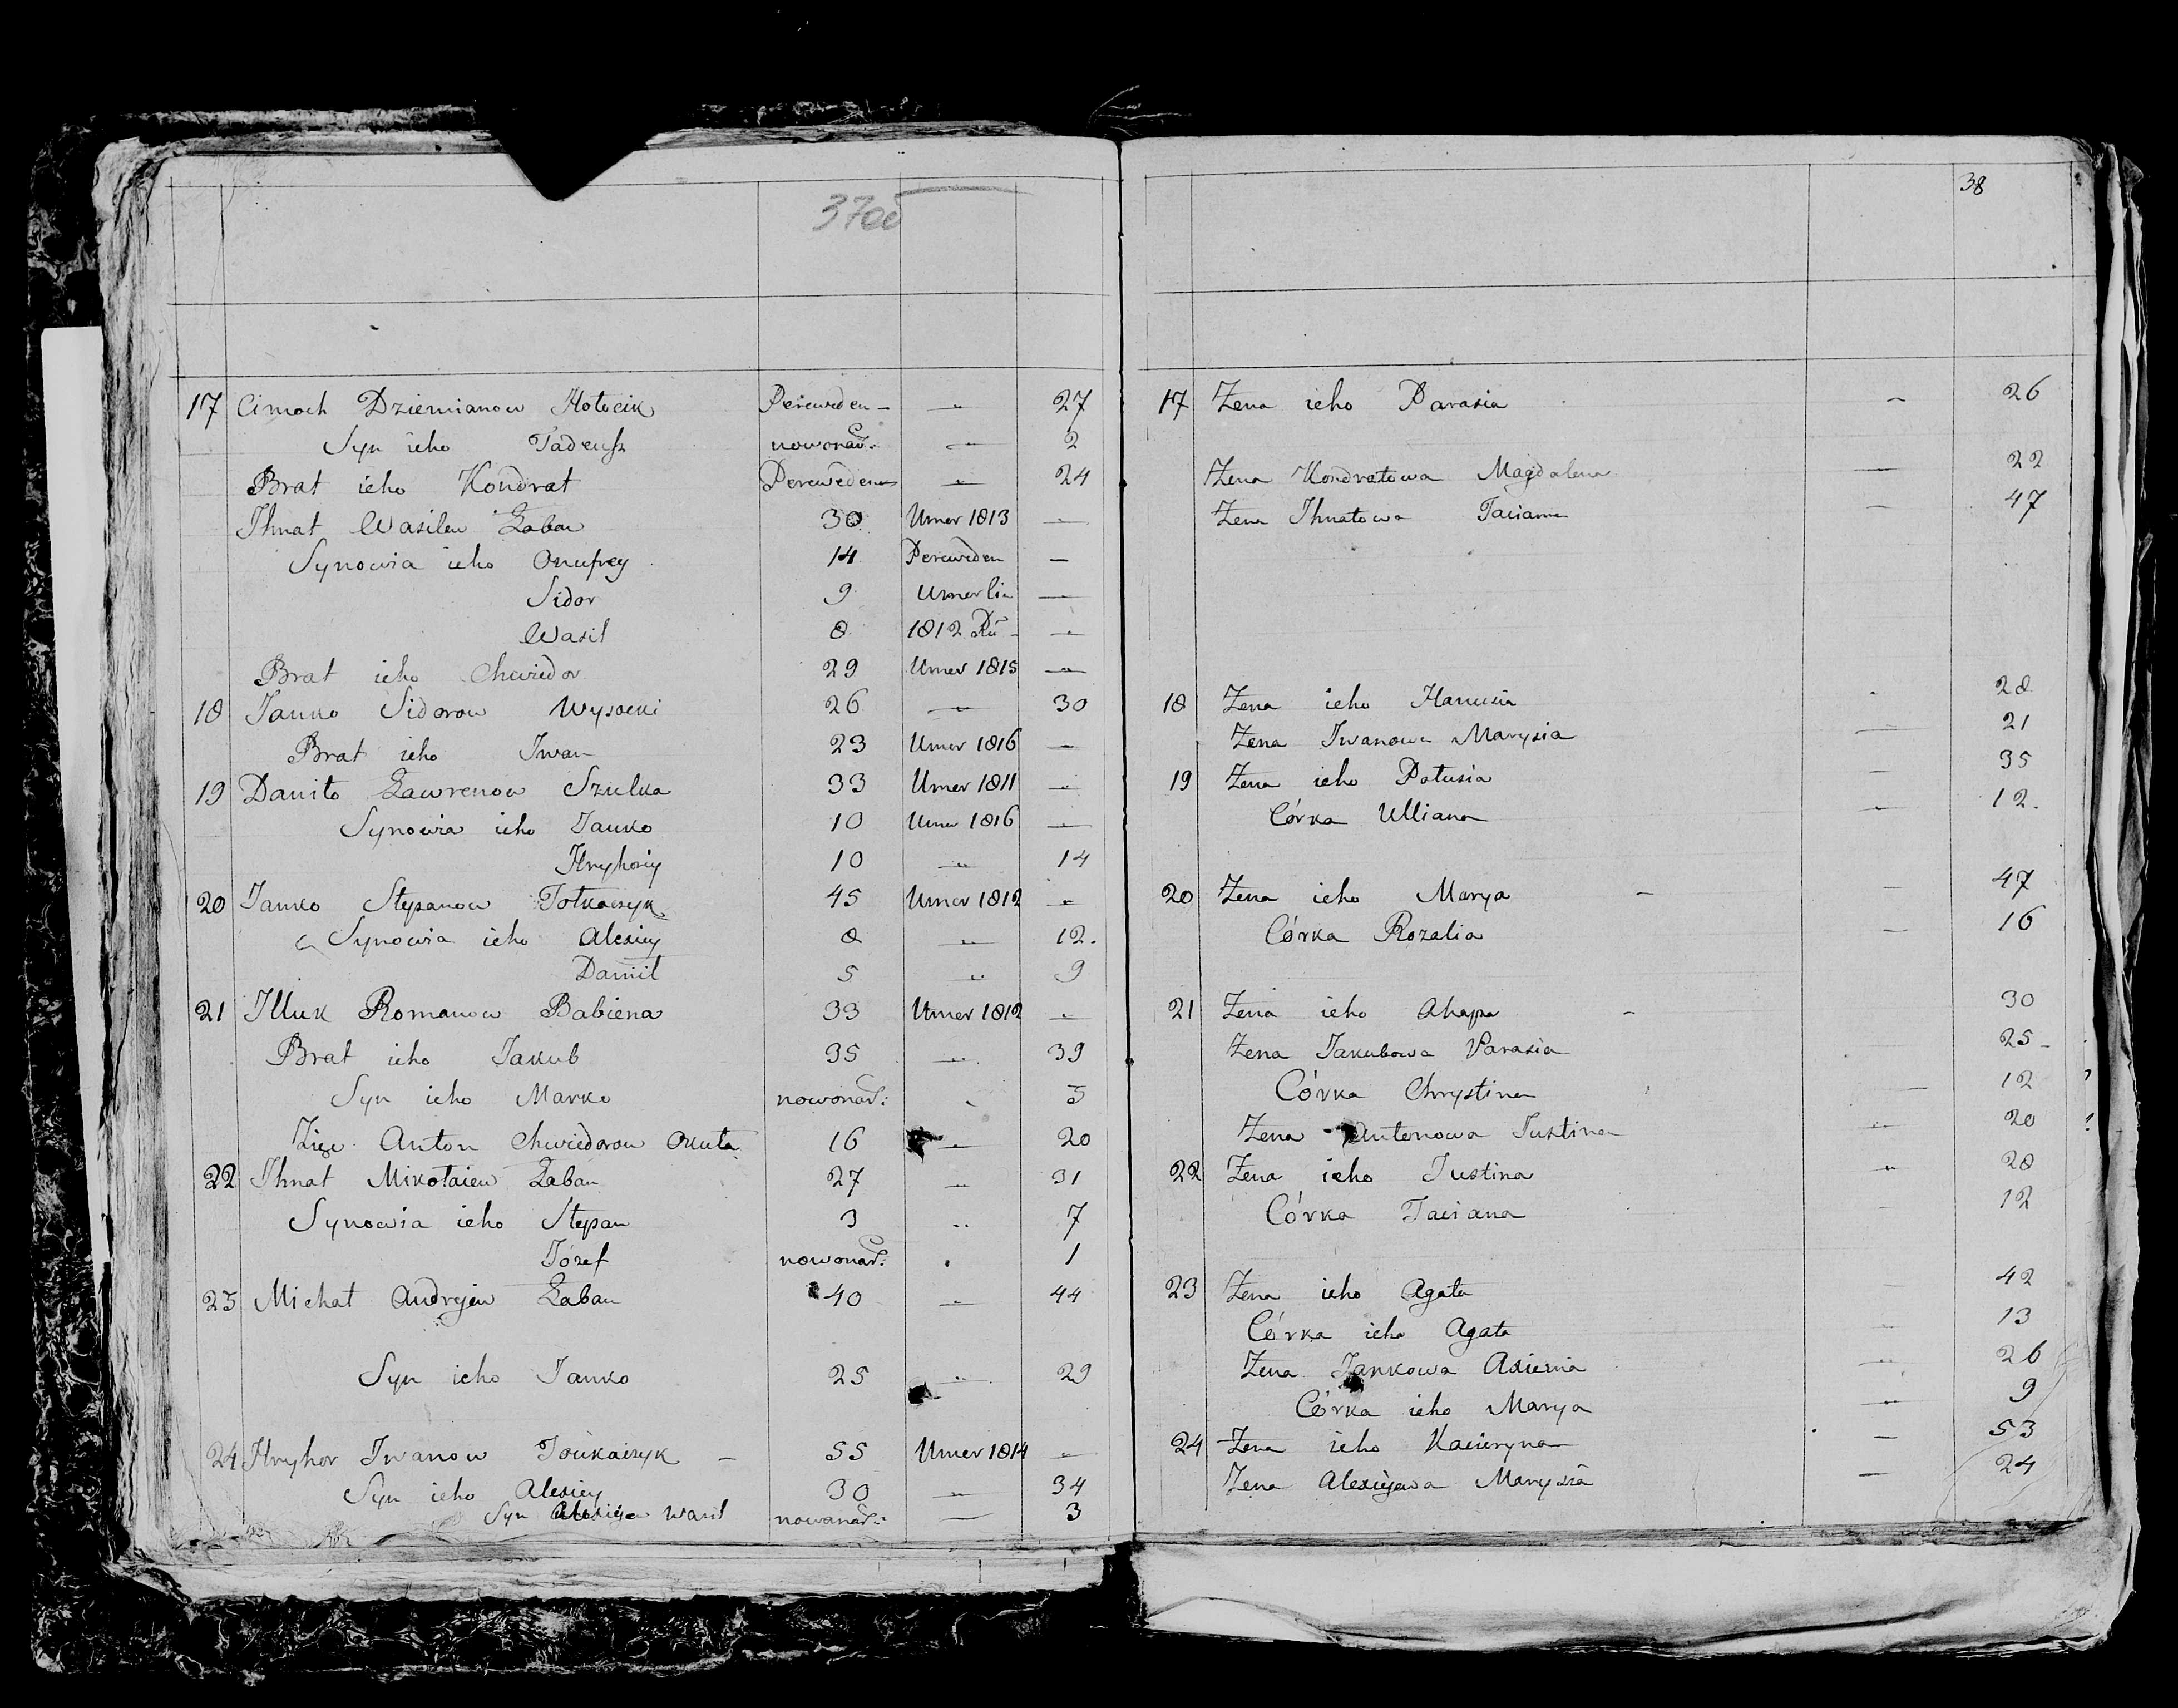 37об
17 Cimoch Dziemianow Hołocik Pereweden - „ 27
Syn ieho Tadeusz nowonar: „ 2
Brat ieho Kondrat Pereweden „ 24
Ihnat Wasilew Łaban 30 Umer 1813 „
Synowia ieho Onufrey 14 Pereweden —
Sidor 9 Umerli —
Wasil 8 1812 Ru „
Brat ieho Chwiedor 29 Umer 1815 „
18 Janko Sidorow Wysocki 26 „ 30
Brat ieho Iwan 23 Umer 1816 —
19 Daniło Ławrenow Szulka 33 Umer 1811 „
Synowia ieho Janko 10 Umer 1816 —
Hryhoriy 10 „ 14
20 Janko Stepanow Tołkaczyk 45 Umer 1812 „
Synowia ieho Alexiey 8 „ 12.
Danił 5 „ 9
21 Illuk Romanow Babiena 33 Umer 1812 „
Brat ieho Jakub 35 „ 39
Syn ieho Marko nowonar: „ 3
Zięc Anton Chwiedorow Okuła 16 „ 20
22 Ihnat Mikołaiew Łaban 27 „ 31
Synowia ieho Stepan 3 „ 7
Józef nowonar: „ 1
23 Michał Andrejew Łaban 40 „ 44
Syn ieho Janko 25 „ 29
24 Hryhor Iwanow Toukaczyk — 55 Umer 1814 „
Syn ieho Alexiey 30 „ 34
Syn Alexieja Wasil nowonar: — 3
38
17 Żena ieho Parasia - 26
Żena Kondratowa Magdalena — 22
Żena Ihnatowa Taciana — 47
18 Żena ieho Hanusia 28
Żena Iwanowa Marysia — 21
19 Żena ieho Połusia — 35
Córka Ulliana „ 12.
20 Żena ieho Marya — 47
Córka Rozalia — 16
21 Żena ieho Ahapa - 30
Żena Jakubowa Parasia 25 -
Córka Chrystina — 12
Żena Antonowa Justina „ 20
22 Żena ieho Justina „ 28
Córka Taciana 12
23 Żena ieho Agata 42
Córka ieho Agata „ 13
Żena Jankowa Axienia „ 26
Córka ieho Marya „ 9
24 Żena ieho Kacieryna — 53
Żena Alexiejewa Marysia — 24